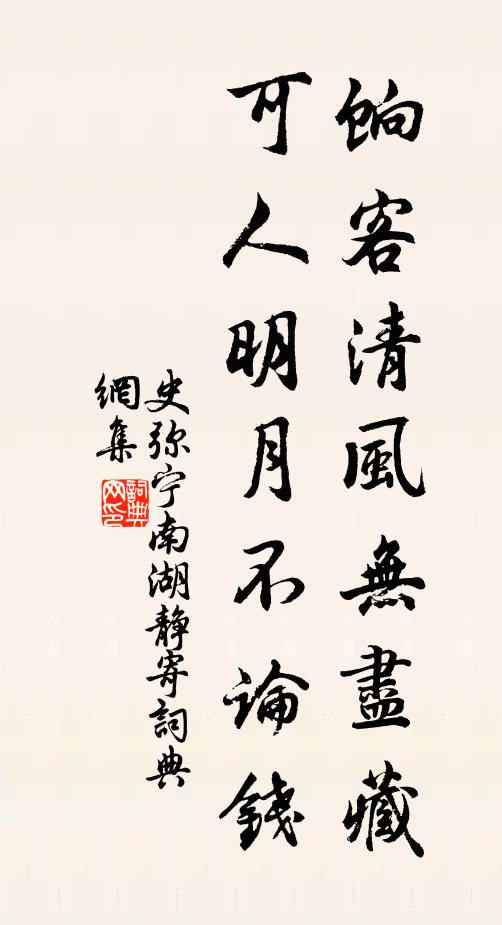 餉客清風無盡藏
可人明月不論錢
史弥宁南湖靜寄詞典
網集
詞典
网印